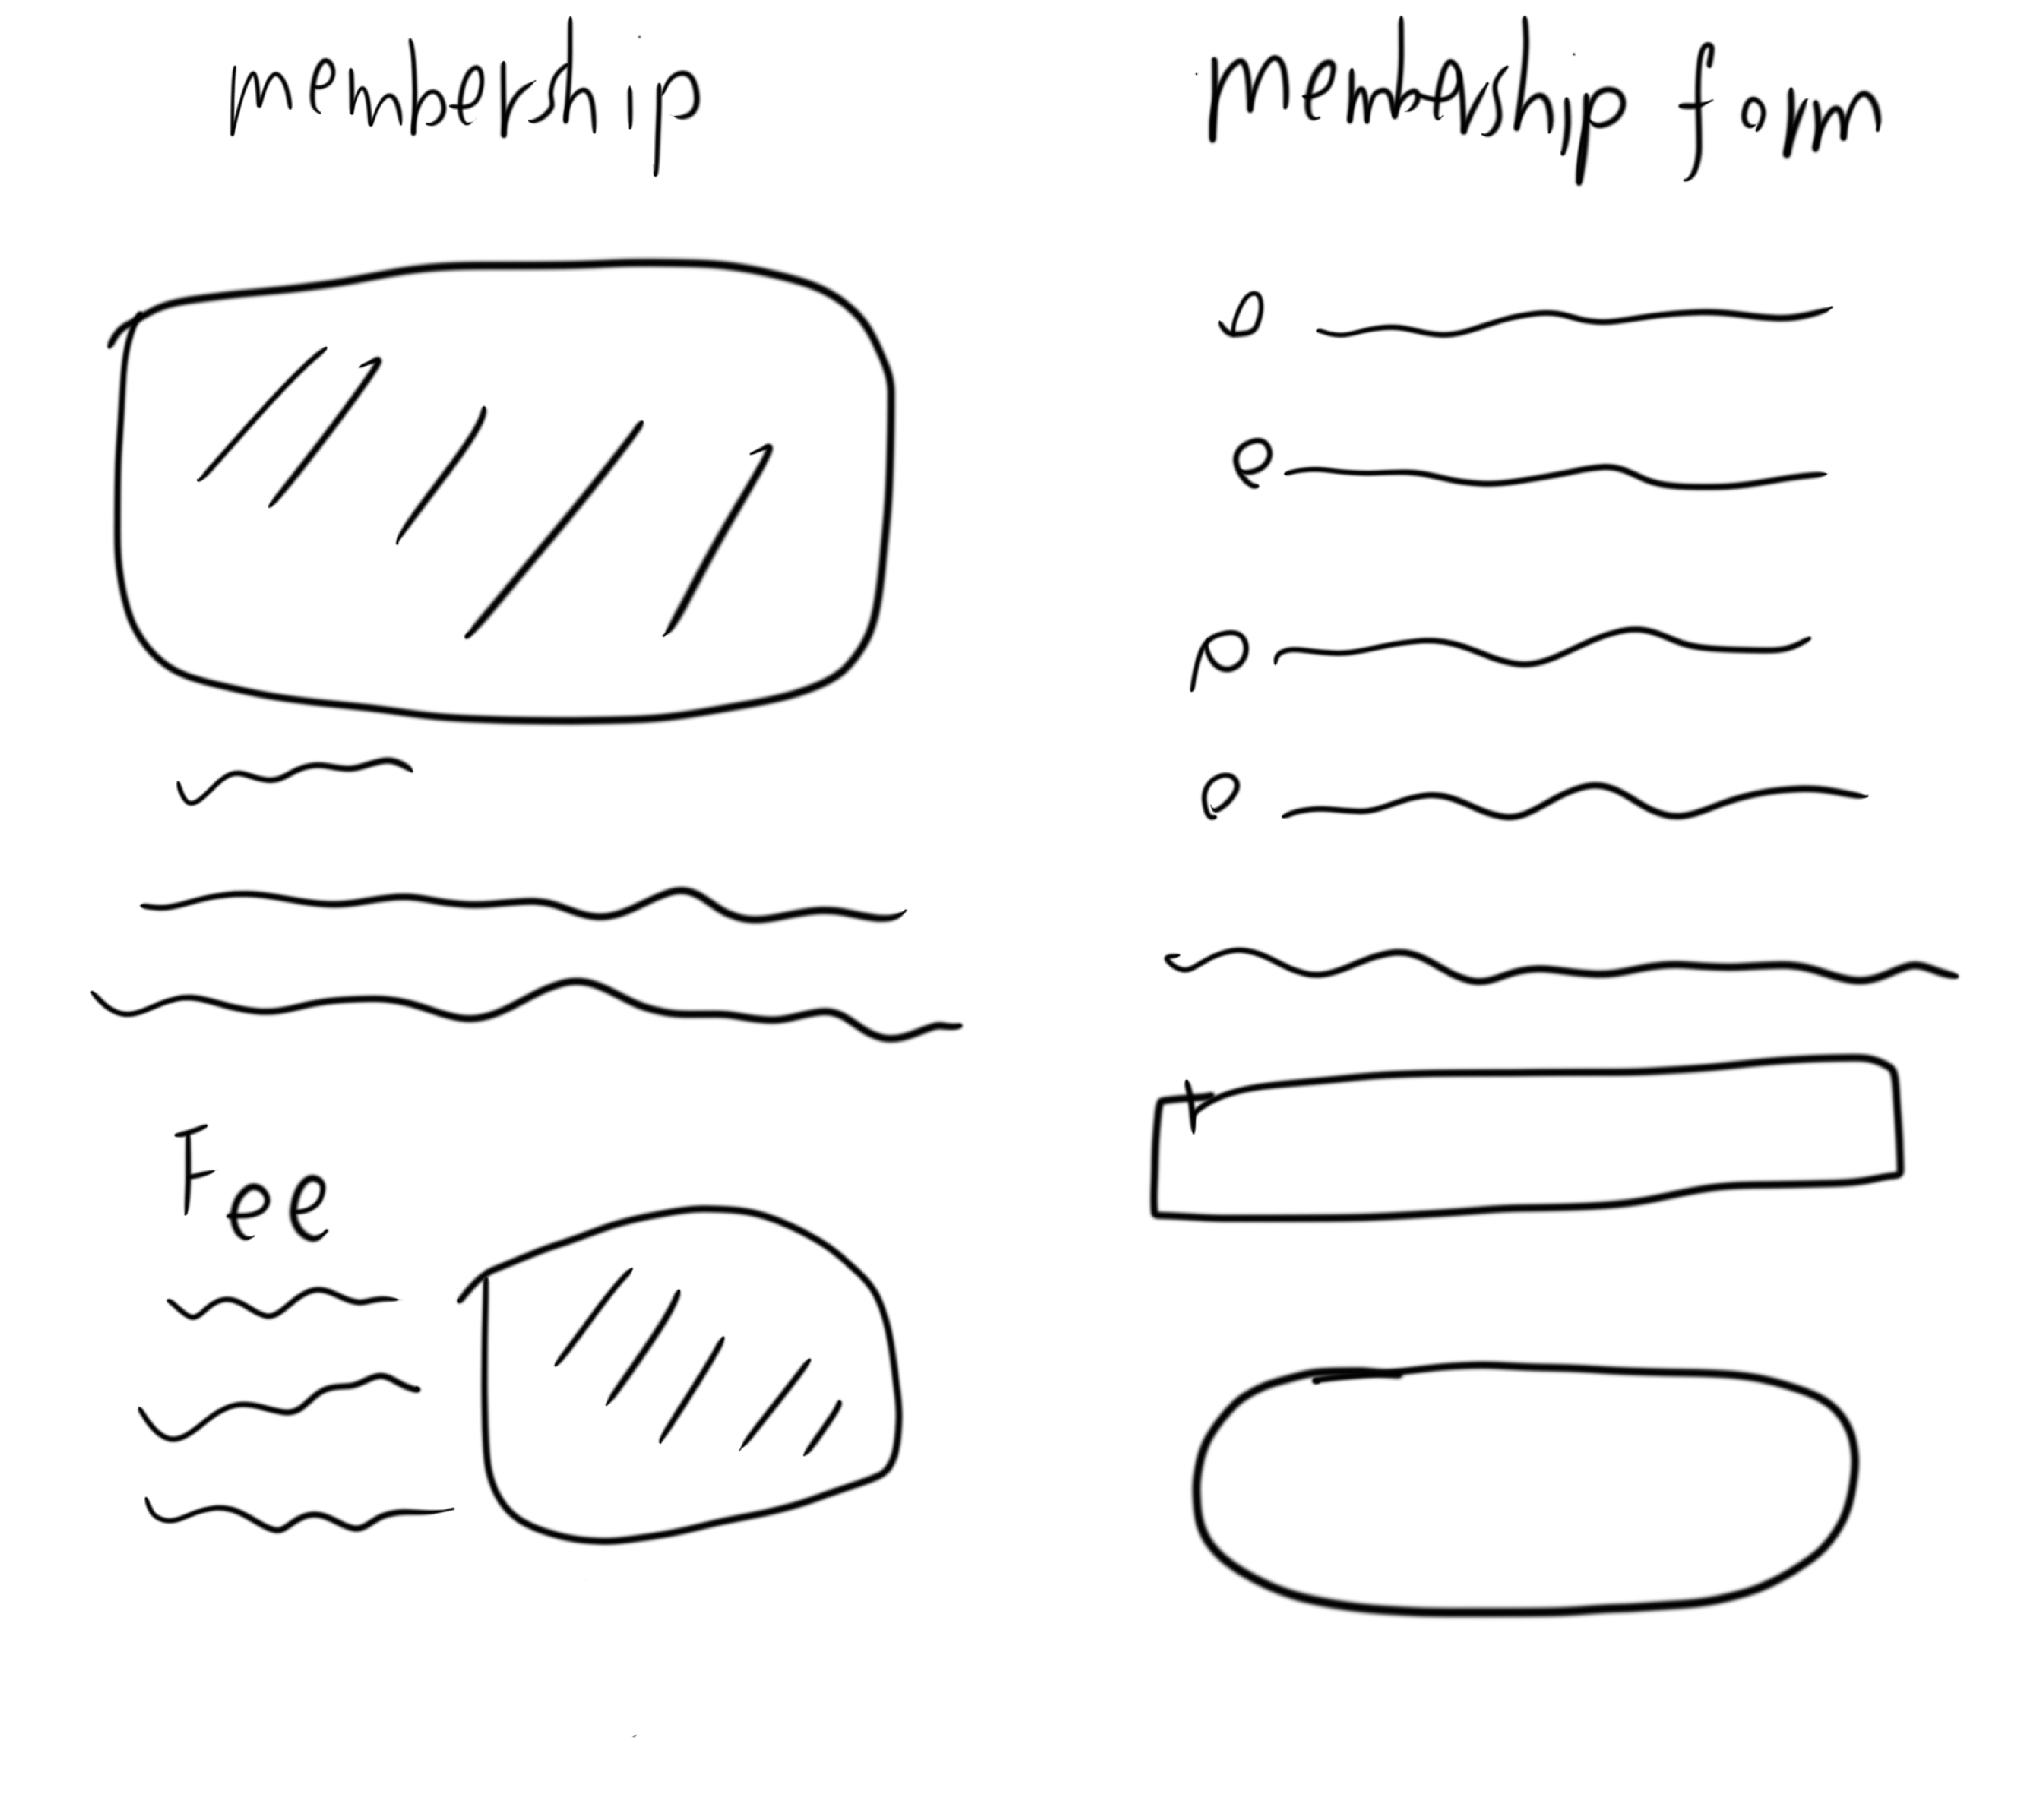 membership
Fee
membership form